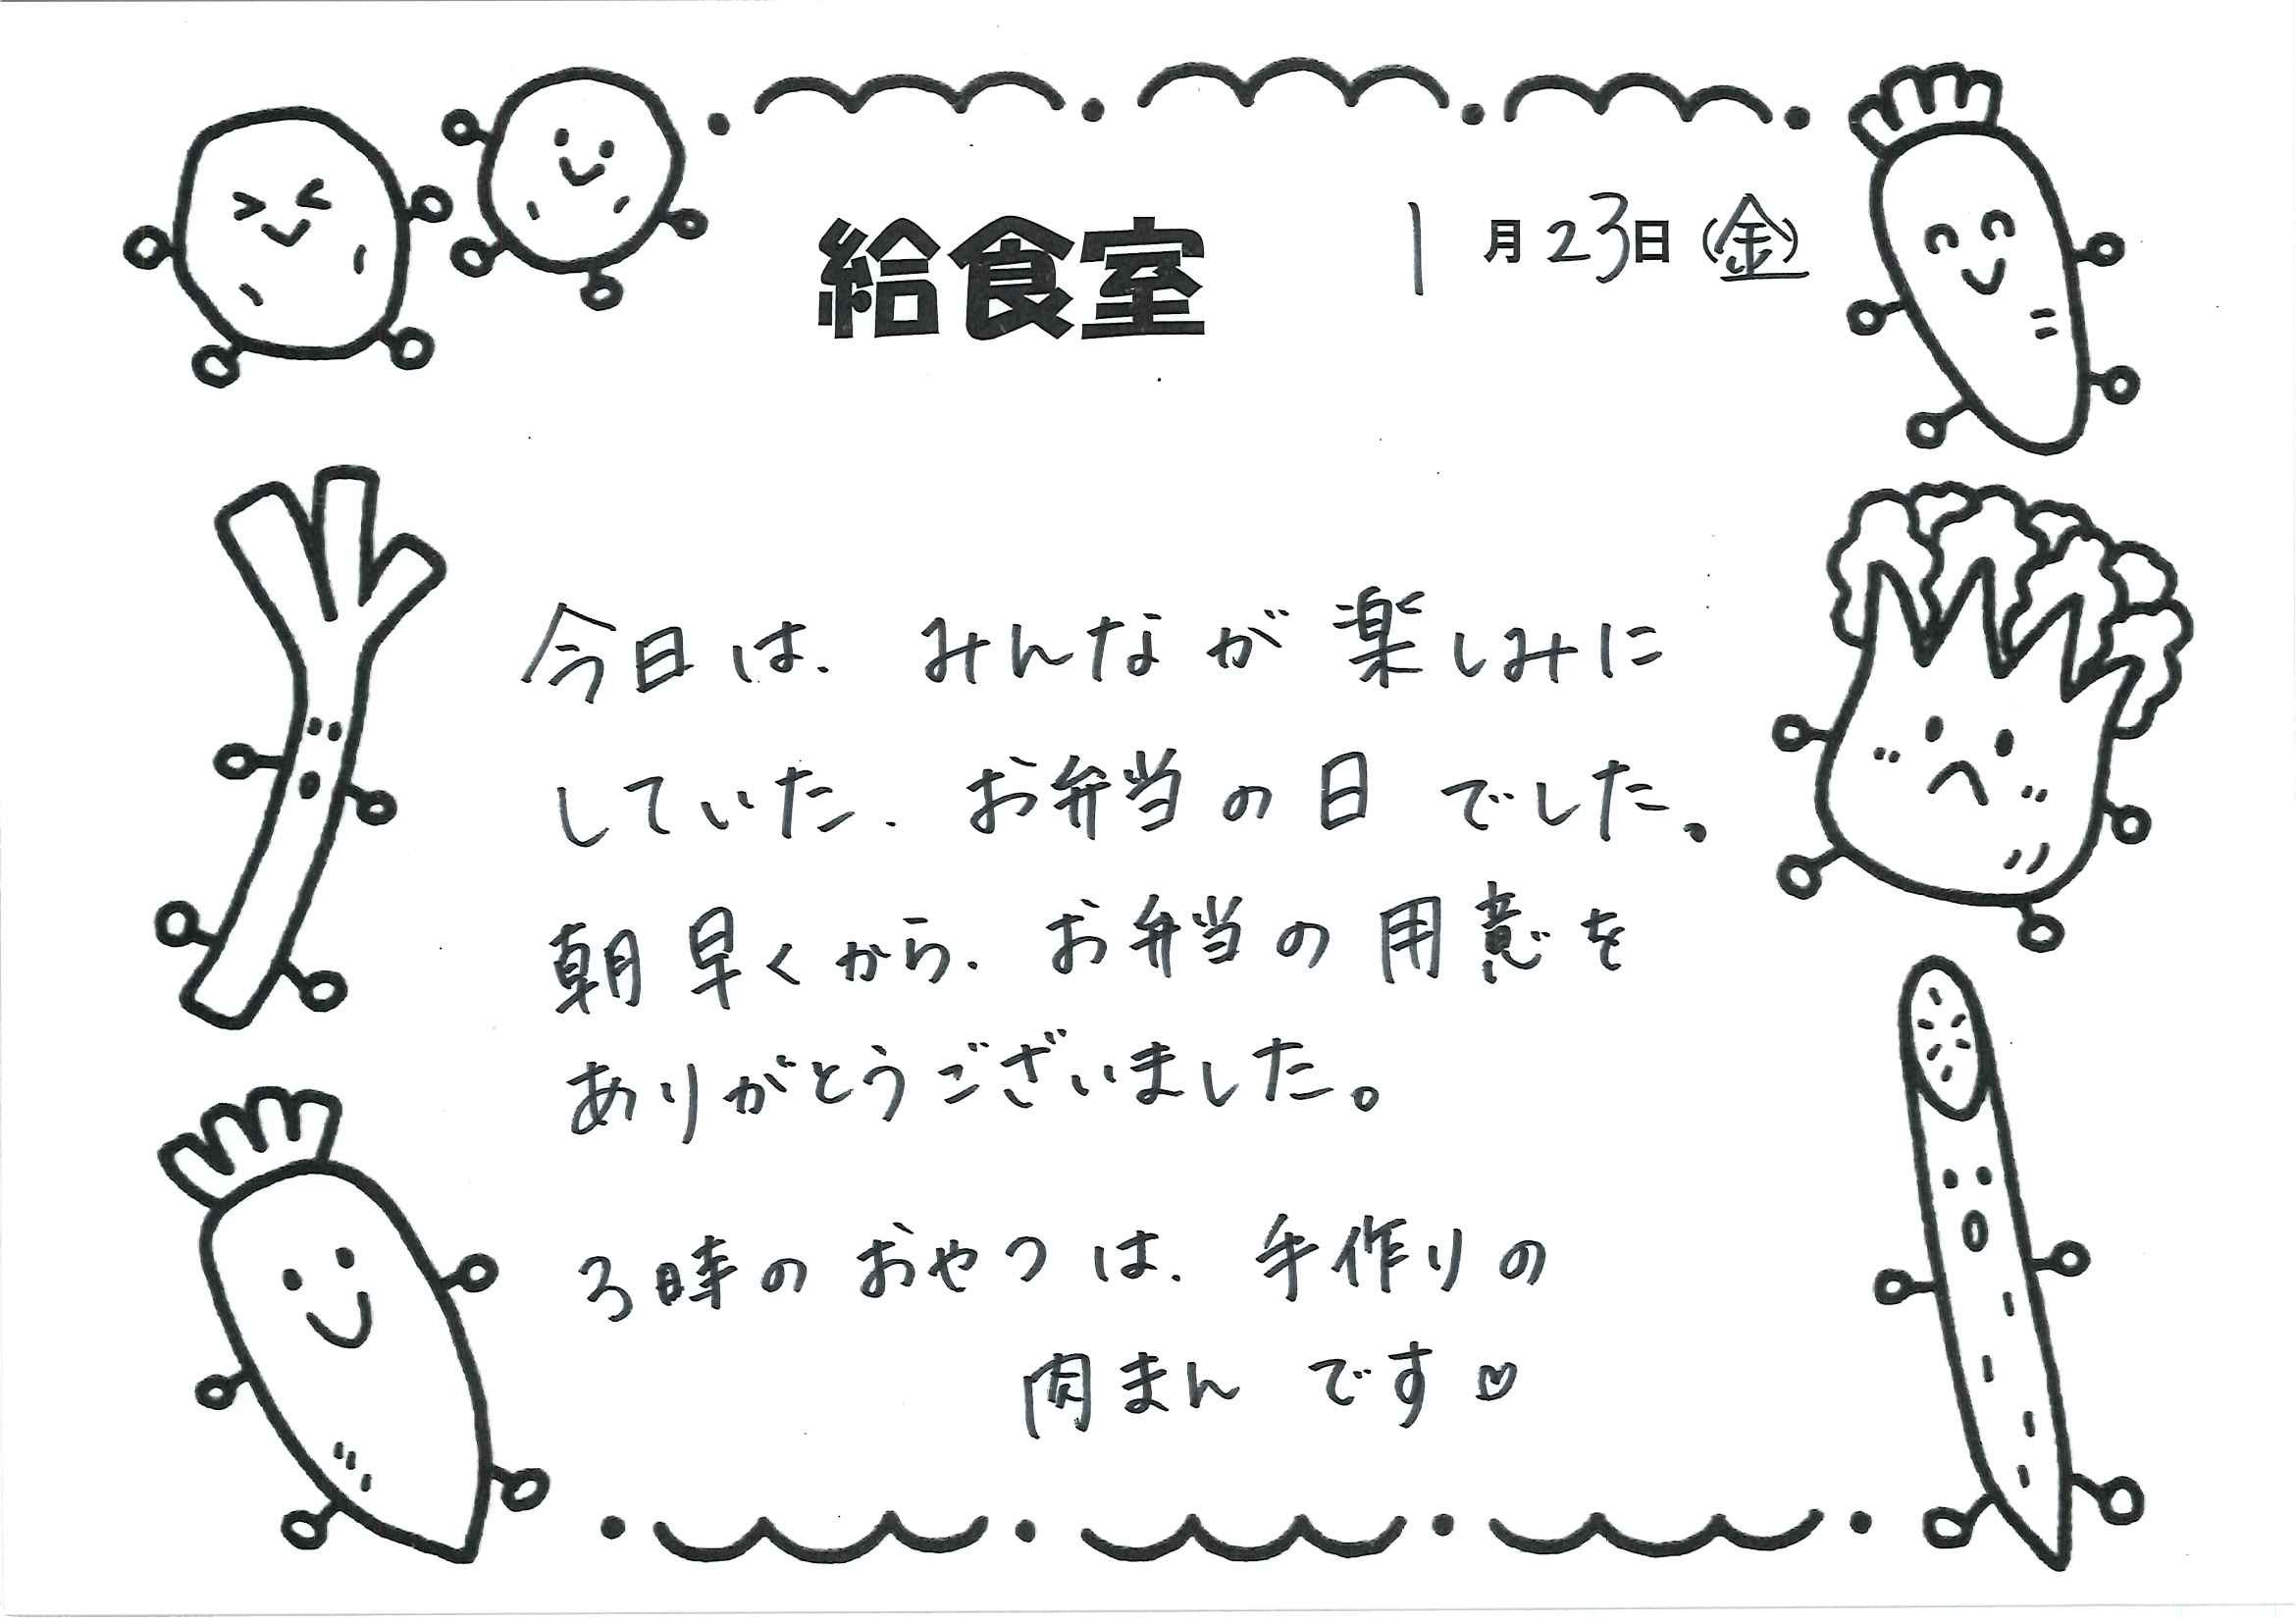 給食室
1月23日(金)
今日は、みんなが楽しみに
していた、お弁当の日でした。
朝早くから、お弁当の用意を
ありがとうございました。
3時のおやつは、手作りの
肉まんです♡